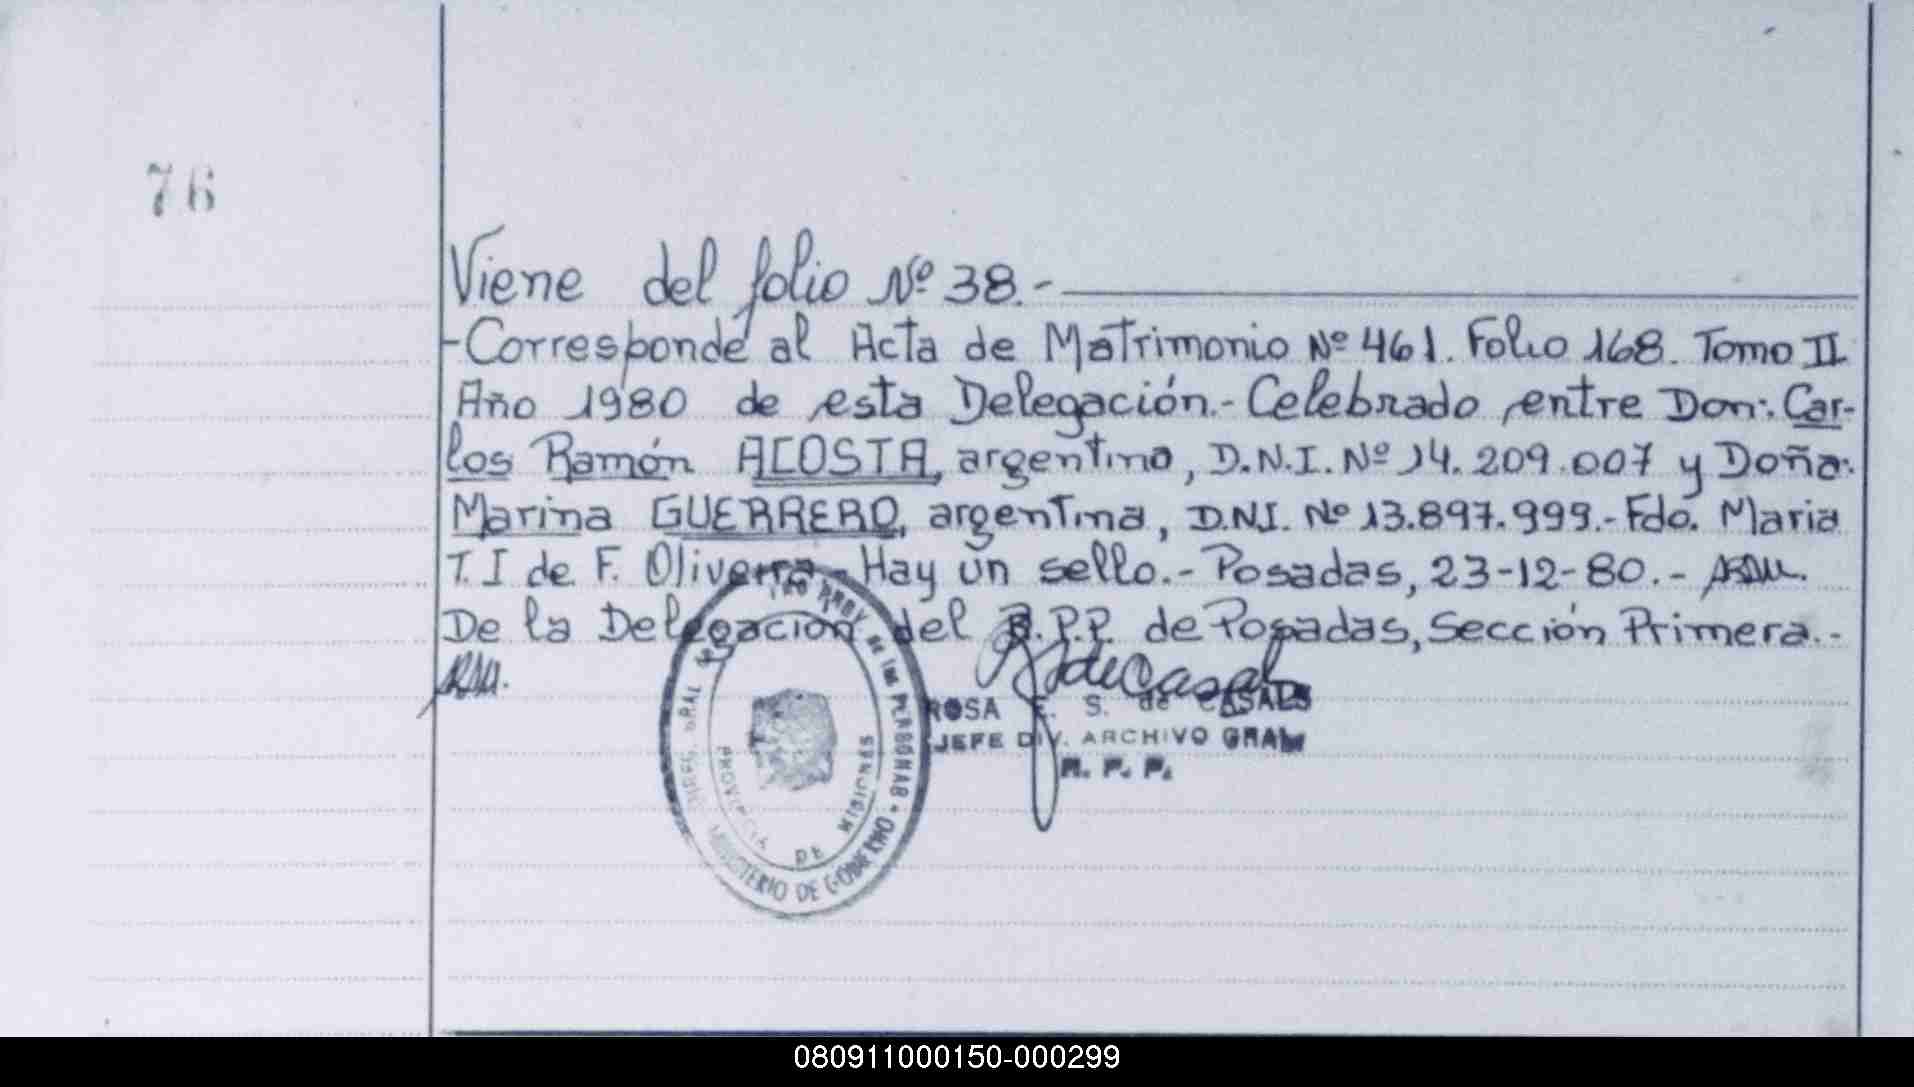 76
Viene del folio Nº 38.-
-Corresponde al Acta de Matrimonio Nº 461. Folio 168. Tomo II
Año 1980 de esta Delegación.- Celebrado entre Don: Car-
los Ramón ACOSTA, argentino, D.N.I. Nº 14.209.007 y Doña:
Marina GUERRERO, argentina, D.N.I. Nº 13.897.999.- Fdo. Maria
T. I de F. Olivera.- Hay un sello.- Posadas, 23-12-80.-
De la Delegación del R.P.P. de Posadas, Sección Primera.-
de las PERSONAS
MINISTERIO DE GOBIERNO
PROVINCIA DE MISIONES
ROSA E. S. de CASALS
JEFE DIV. ARCHIVO GRAL
R. P. P.
080911000150-000299